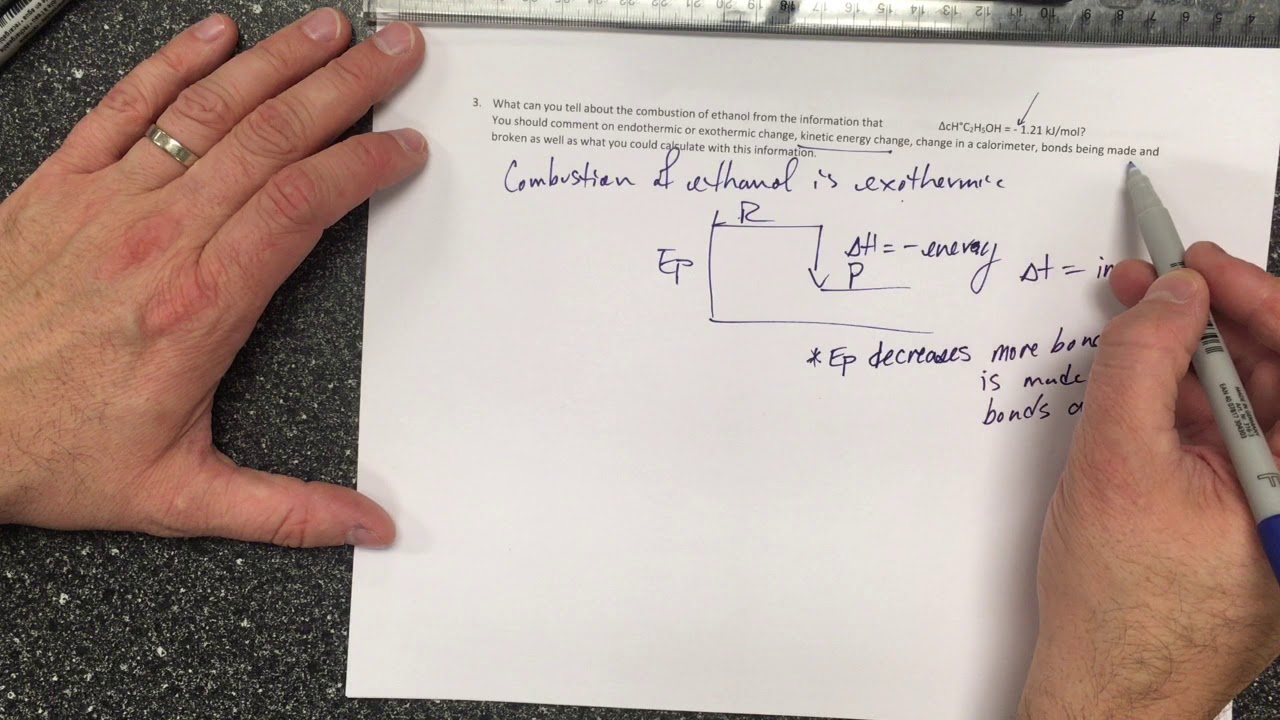 3. What can you tell about the combustion of ethanol from the information that ΔcH°C₂H₅OH = - 1.21 kJ/mol?
You should comment on endothermic or exothermic change, kinetic energy change, change in a calorimeter, bonds being made and
broken as well as what you could calculate with this information.
Combustion of ethanol is exothermic
R
Ep
ΔH = - energy
P
Δt = in
* Ep decreases more bond
is made
bonds a